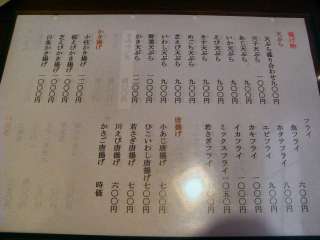 揚げ物
天ぷら
天ぷら盛り合わせ
穴子天ぷら
あじ天ぷら 九〇〇円
いか天ぷら 九〇〇円
えび天ぷら 九〇〇円
キス天ぷら 九〇〇円
めごち天ぷら 九〇〇円
芝えび天ぷら 九〇〇円
いわし天ぷら 九〇〇円
野菜天ぷら 九〇〇円
かき揚げ
小柱かき揚げ 一〇〇〇円
桜えびかき揚げ 一〇〇〇円
芝えびかき揚げ 一〇〇〇円
白魚かき揚げ 一〇〇〇円
フライ
魚フライ 六〇〇円
ホタテフライ 九〇〇円
エビフライ 九〇〇円
カキフライ 一〇〇〇円
イカフライ 九〇〇円
ミックスフライ 一〇五〇円
若さぎフライ 七〇〇円
唐揚げ
小あじ唐揚げ 七〇〇円
ひこいわし唐揚げ 七〇〇円
若さぎ唐揚げ 七〇〇円
川えび唐揚げ 六〇〇円
かさご唐揚げ 時価